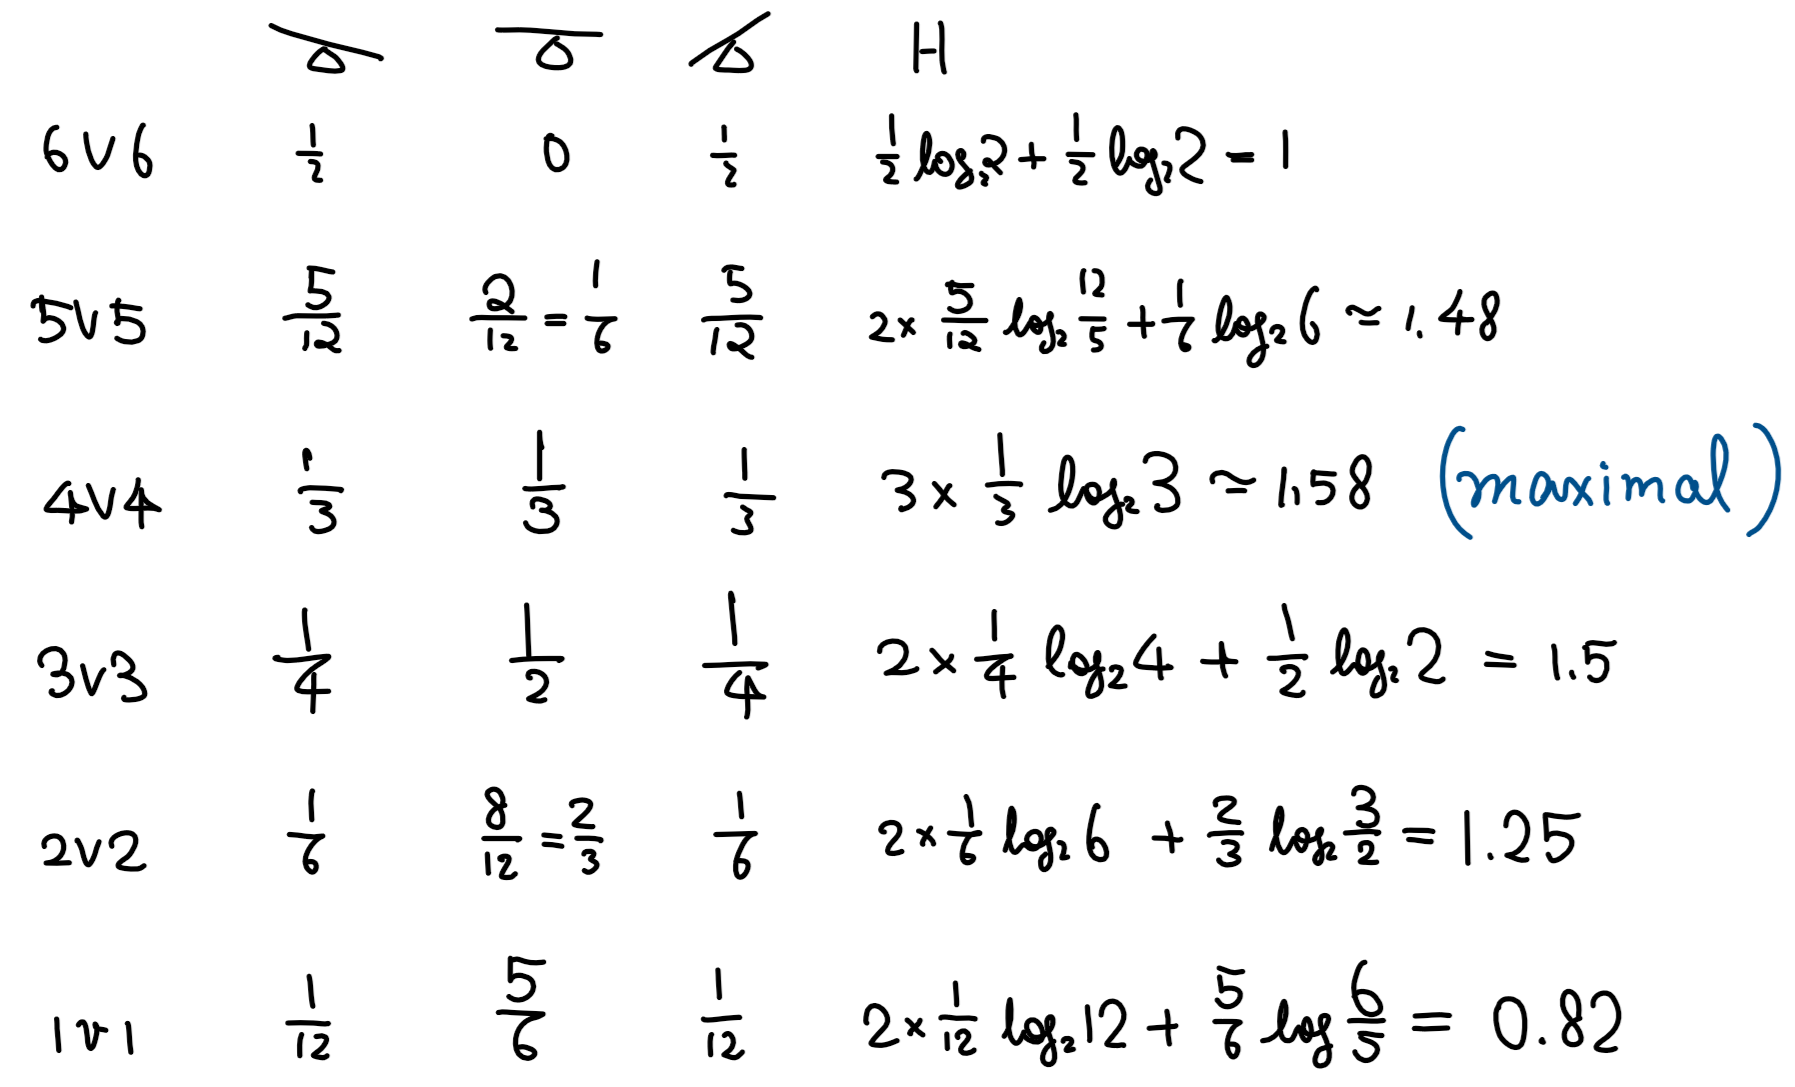 H
6v6 1/2 0 1/2 1/2 log₂2 + 1/2 log₂2 = 1
5v5 5/12 2/12 = 1/6 5/12 2× 5/12 log₂ 12/5 + 1/6 log₂ 6 ≈ 1.48
4v4 1/3 1/3 1/3 3 × 1/3 log₂ 3 ≈ 1.58 (maximal)
3v3 1/4 1/2 1/4 2 × 1/4 log₂ 4 + 1/2 log₂ 2 = 1.5
2v2 1/6 8/12 = 2/3 1/6 2 × 1/6 log₂ 6 + 2/3 log₂ 3/2 = 1.25
1v1 1/12 5/6 1/12 2 × 1/12 log₂ 12 + 5/6 log 6/5 = 0.82